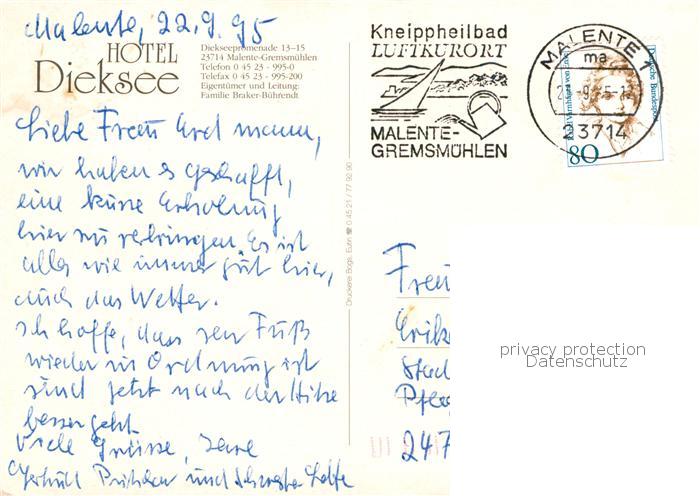 Malente, 22.9.95
HOTEL
Dieksee
Diekseepromenade 13–15
23714 Malente-Gremsmühlen
Telefon 0 45 23 - 995-0
Telefax 0 45 23 - 995-200
Eigentümer und Leitung:
Familie Braker-Bührendt
Kneippheilbad
LUFTKURORT
MALENTE-
GREMSMÜHLEN
MALENTE 1
ma
23714
Deutsche Bundespost
80
Liebe Frau Erdmann,
wir haben es geschafft,
eine kurze Erholung
hier zu verbringen. Es ist
alles wie immer gut hier,
auch das Wetter.
Ich hoffe, dass der Fuß
wieder in Ordnung ist
und jetzt nach der Hitze
besser geht.
Viele Grüsse, Ihre
und Schwester
Druckerei Bogs, Eutin ☎ 0 45 21 / 77 92 90
Frau
Erik
Stad
Pfleg
247
privacy protection
Datenschutz